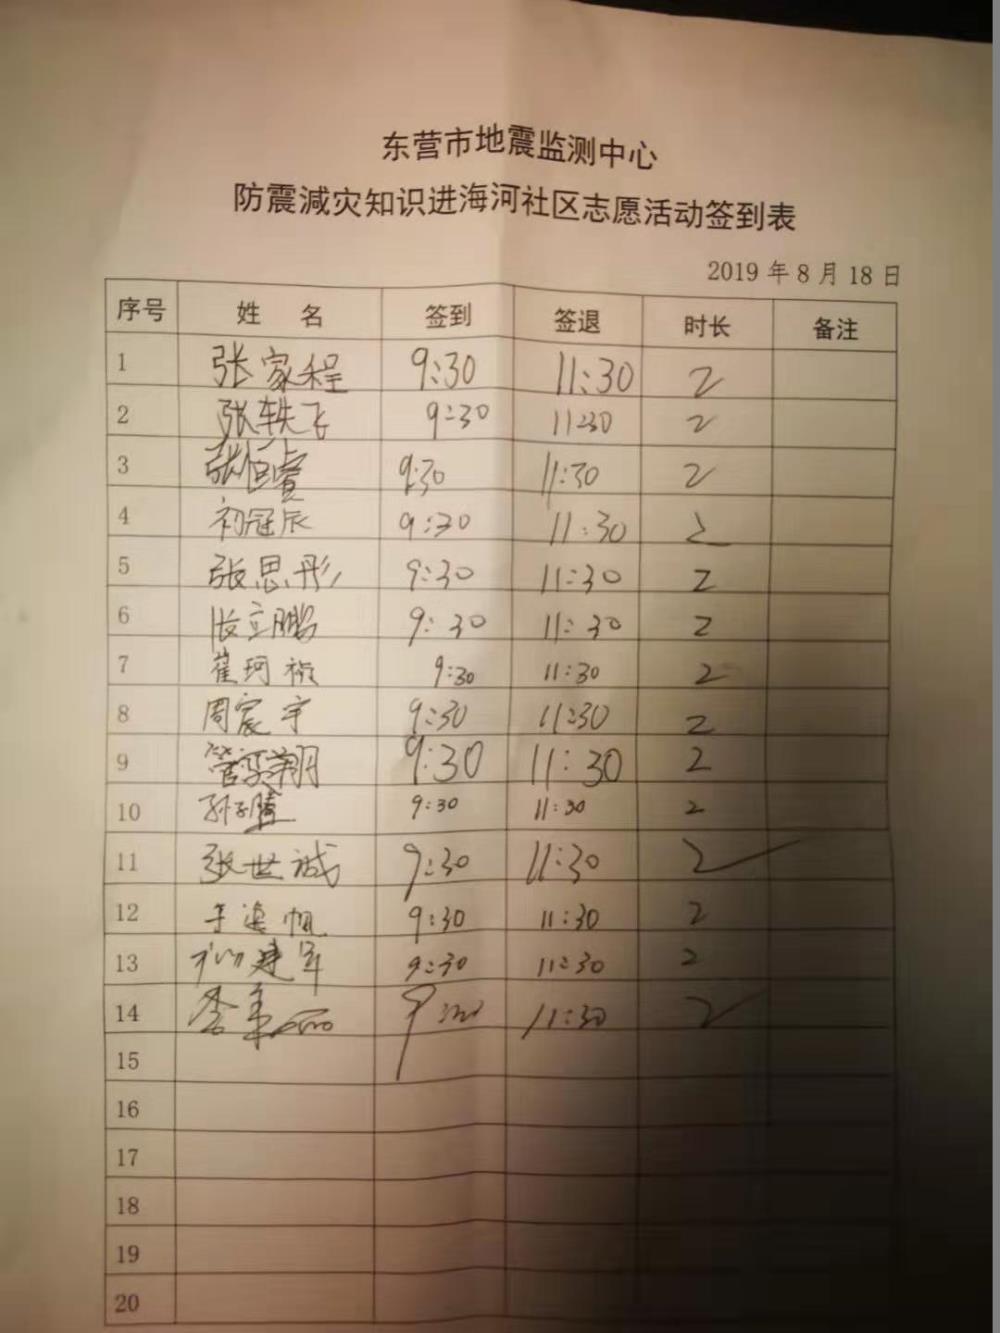 东营市地震监测中心
防震减灾知识进海河社区志愿活动签到表
2019年8月18日
序号 姓名 签到 签退 时长 备注
1 张家程 9:30 11:30 2
2 张轶飞 9:30 11:30 2
3 张恒睿 9:30 11:30 2
4 初冠辰 9:30 11:30 2
5 张思彤 9:30 11:30 2
6 张立鹏 9:30 11:30 2
7 崔珂 9:30 11:30 2
8 周宸宇 9:30 11:30 2
9 管 翔 9:30 11:30 2
10 孙子腾 9:30 11:30 2
11 张世诚 9:30 11:30 2
12 帆 9:30 11:30 2
13 建军 9:30 11:30 2
14 李 11:30 2
15
16
17
18
19
20